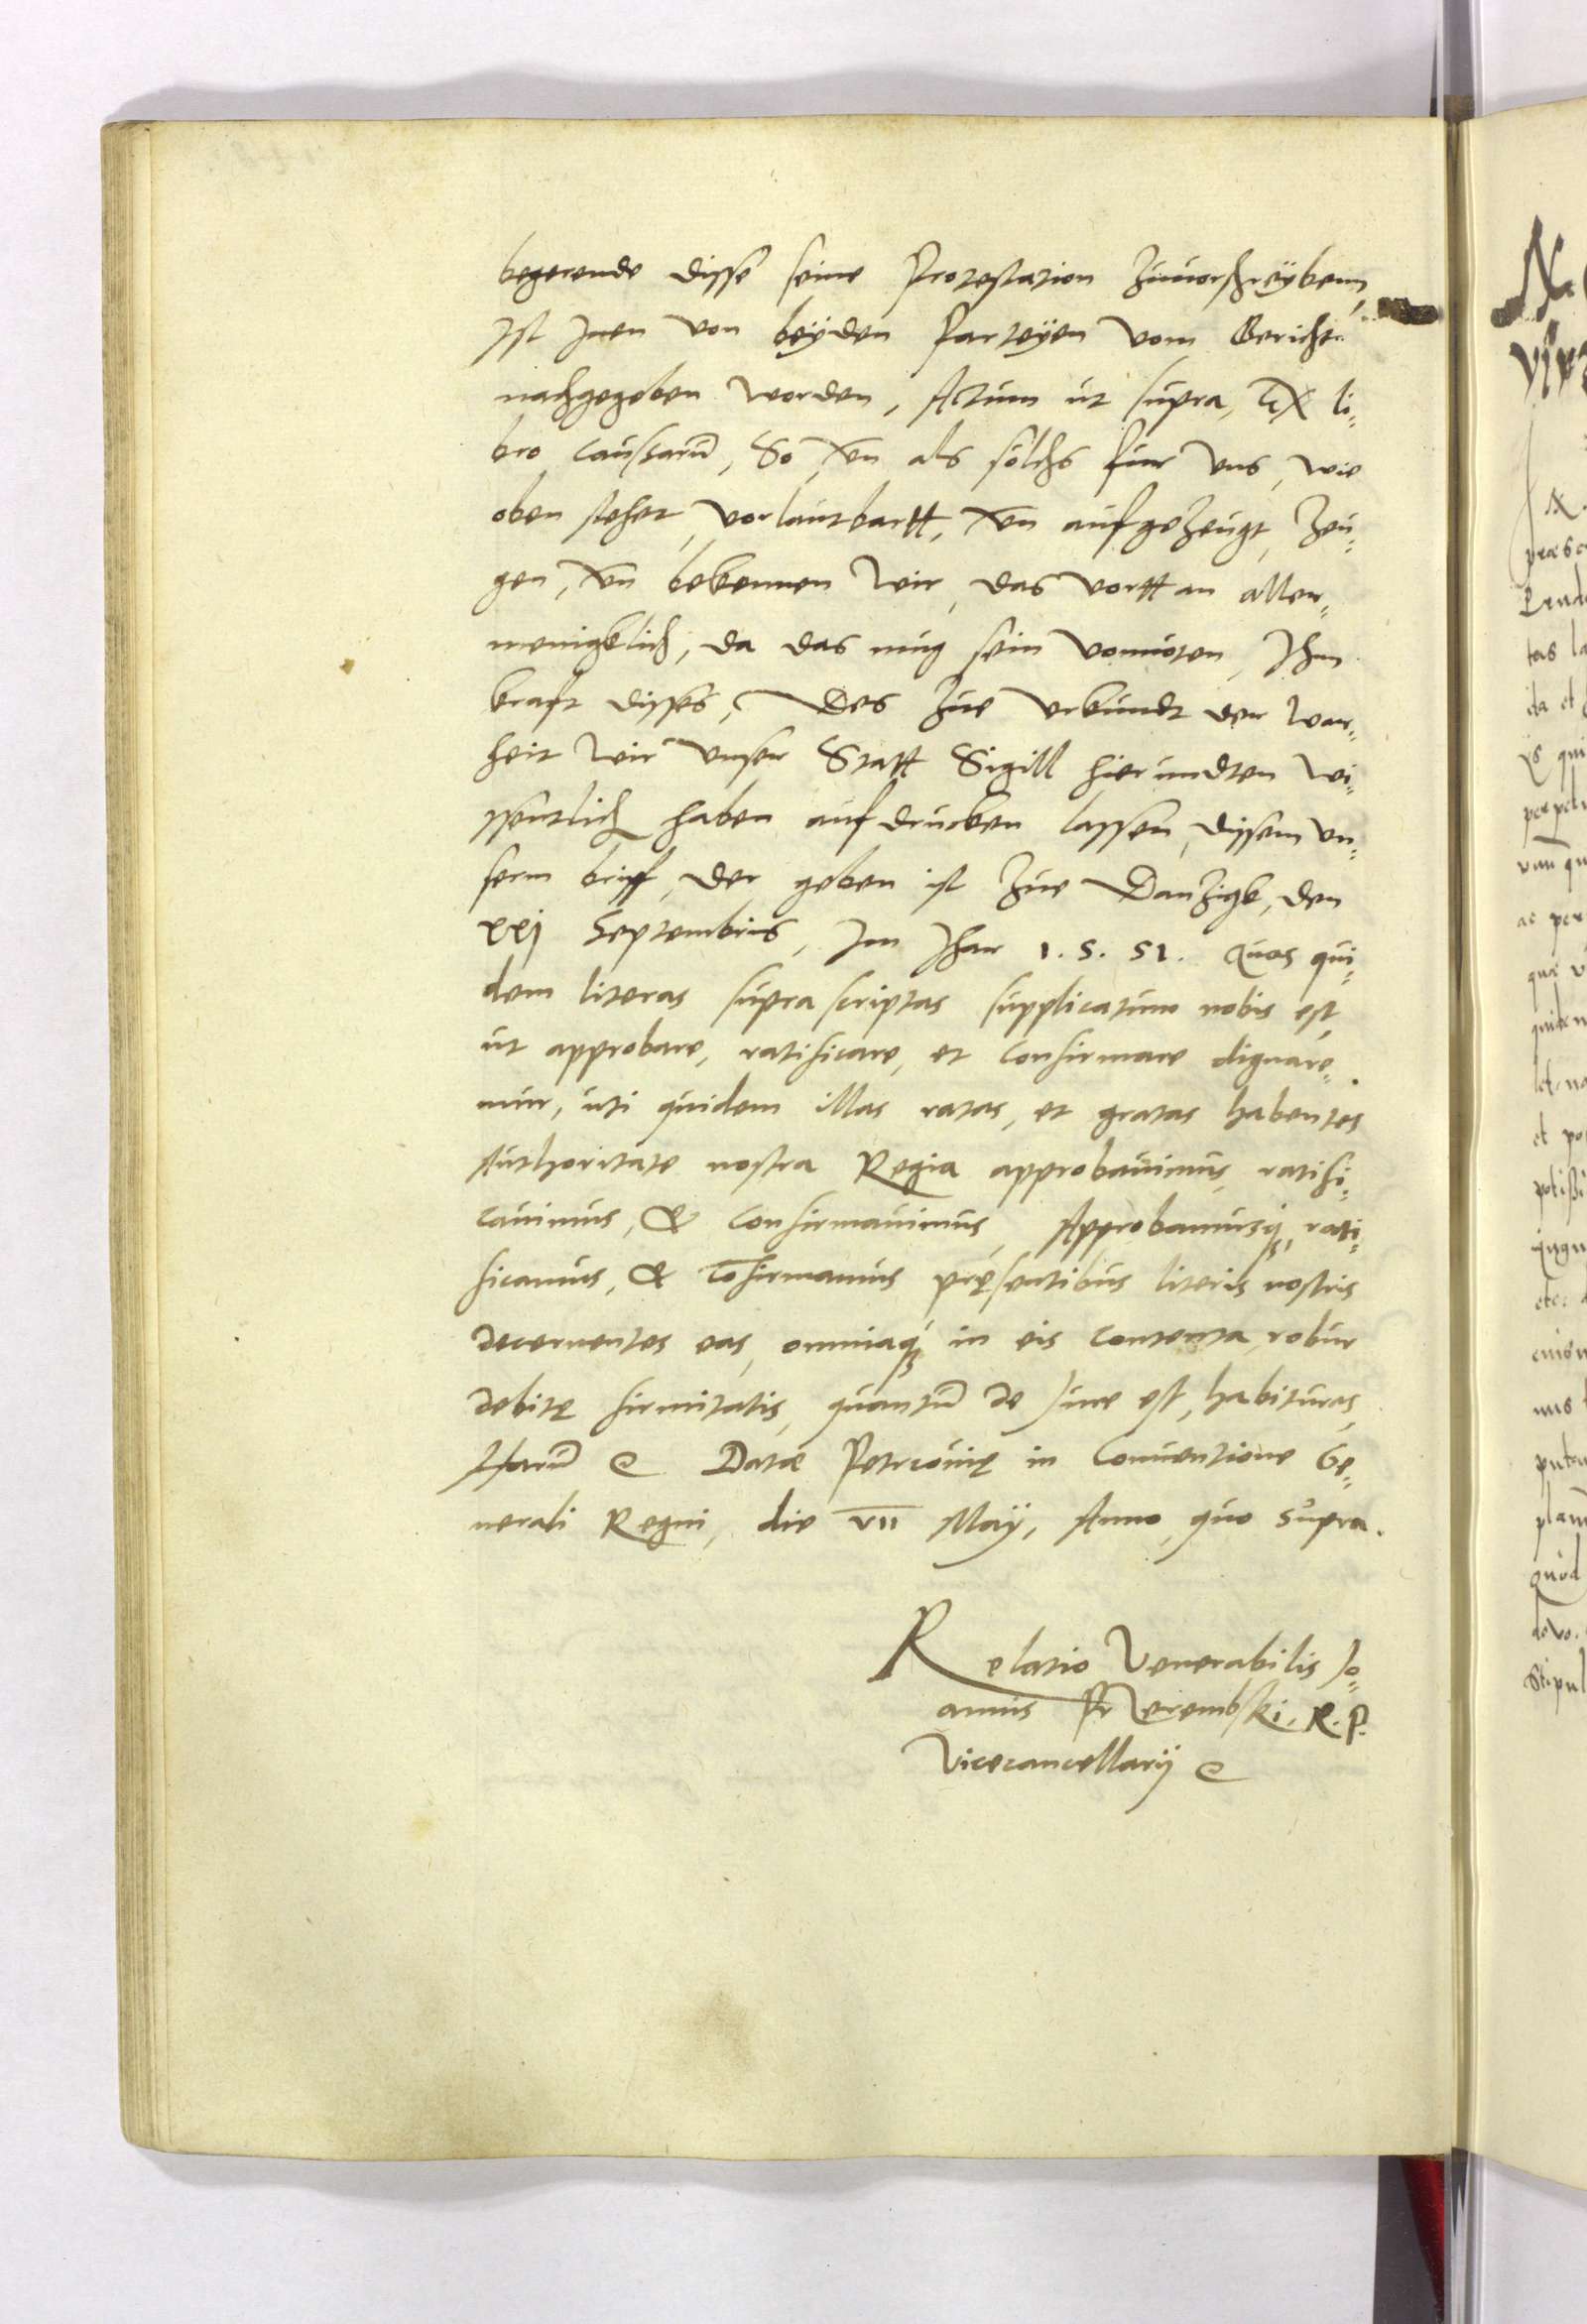 begerende disse seine Protestation Zuuorschreÿbenn,
Ist Inen von beÿden Parteÿen vom Gericht
nachgegeben worden, Actum ut supra, Ex li¬
bro caussarū, So, vn als solchs fur vns, wie
oben stehet, vorlautbartt, vn aufgeZeugt, Zeu¬
gen, vn bekennen wir, das vortt an aller¬
menigklich, da das mug sein vonnöten, Ihn
kraft disses, Des Zue vrkundt der war¬
heit wir vnser Statt Sigill hierundten wi¬
ssentlich haben aufdrucken lassen, dissem vn¬
serm briff, der geben ist Zue Danzigk, den
xxj Septembris, Im Ihar 1.5.51. Quas qui¬
dem literas supra scriptas supplicatum nobis est,
ut approbare, ratificare, et confirmare dignare¬
mur, uti quidem illas ratas, et gratas habentes
Authoritate nostra Regia approbauimus, ratifi¬
cauimus, & confirmauimus, Approbamusqꝫ, rati¬
ficamus, & cōfirmamus pręsentibus literis nostris
decernentes eas, omniaqꝫ in eis contenta, robur
debitę firmitatis, quantū de Iure est, habituras,
Harū &c Datæ Petrcouię in Conuentione Ge¬
nerali Regni, die VII Maÿ, Anno, quo supra.
Relatio Venerabilis Io¬
annis Prerembski, R. P.
Vicecancellarÿ &c